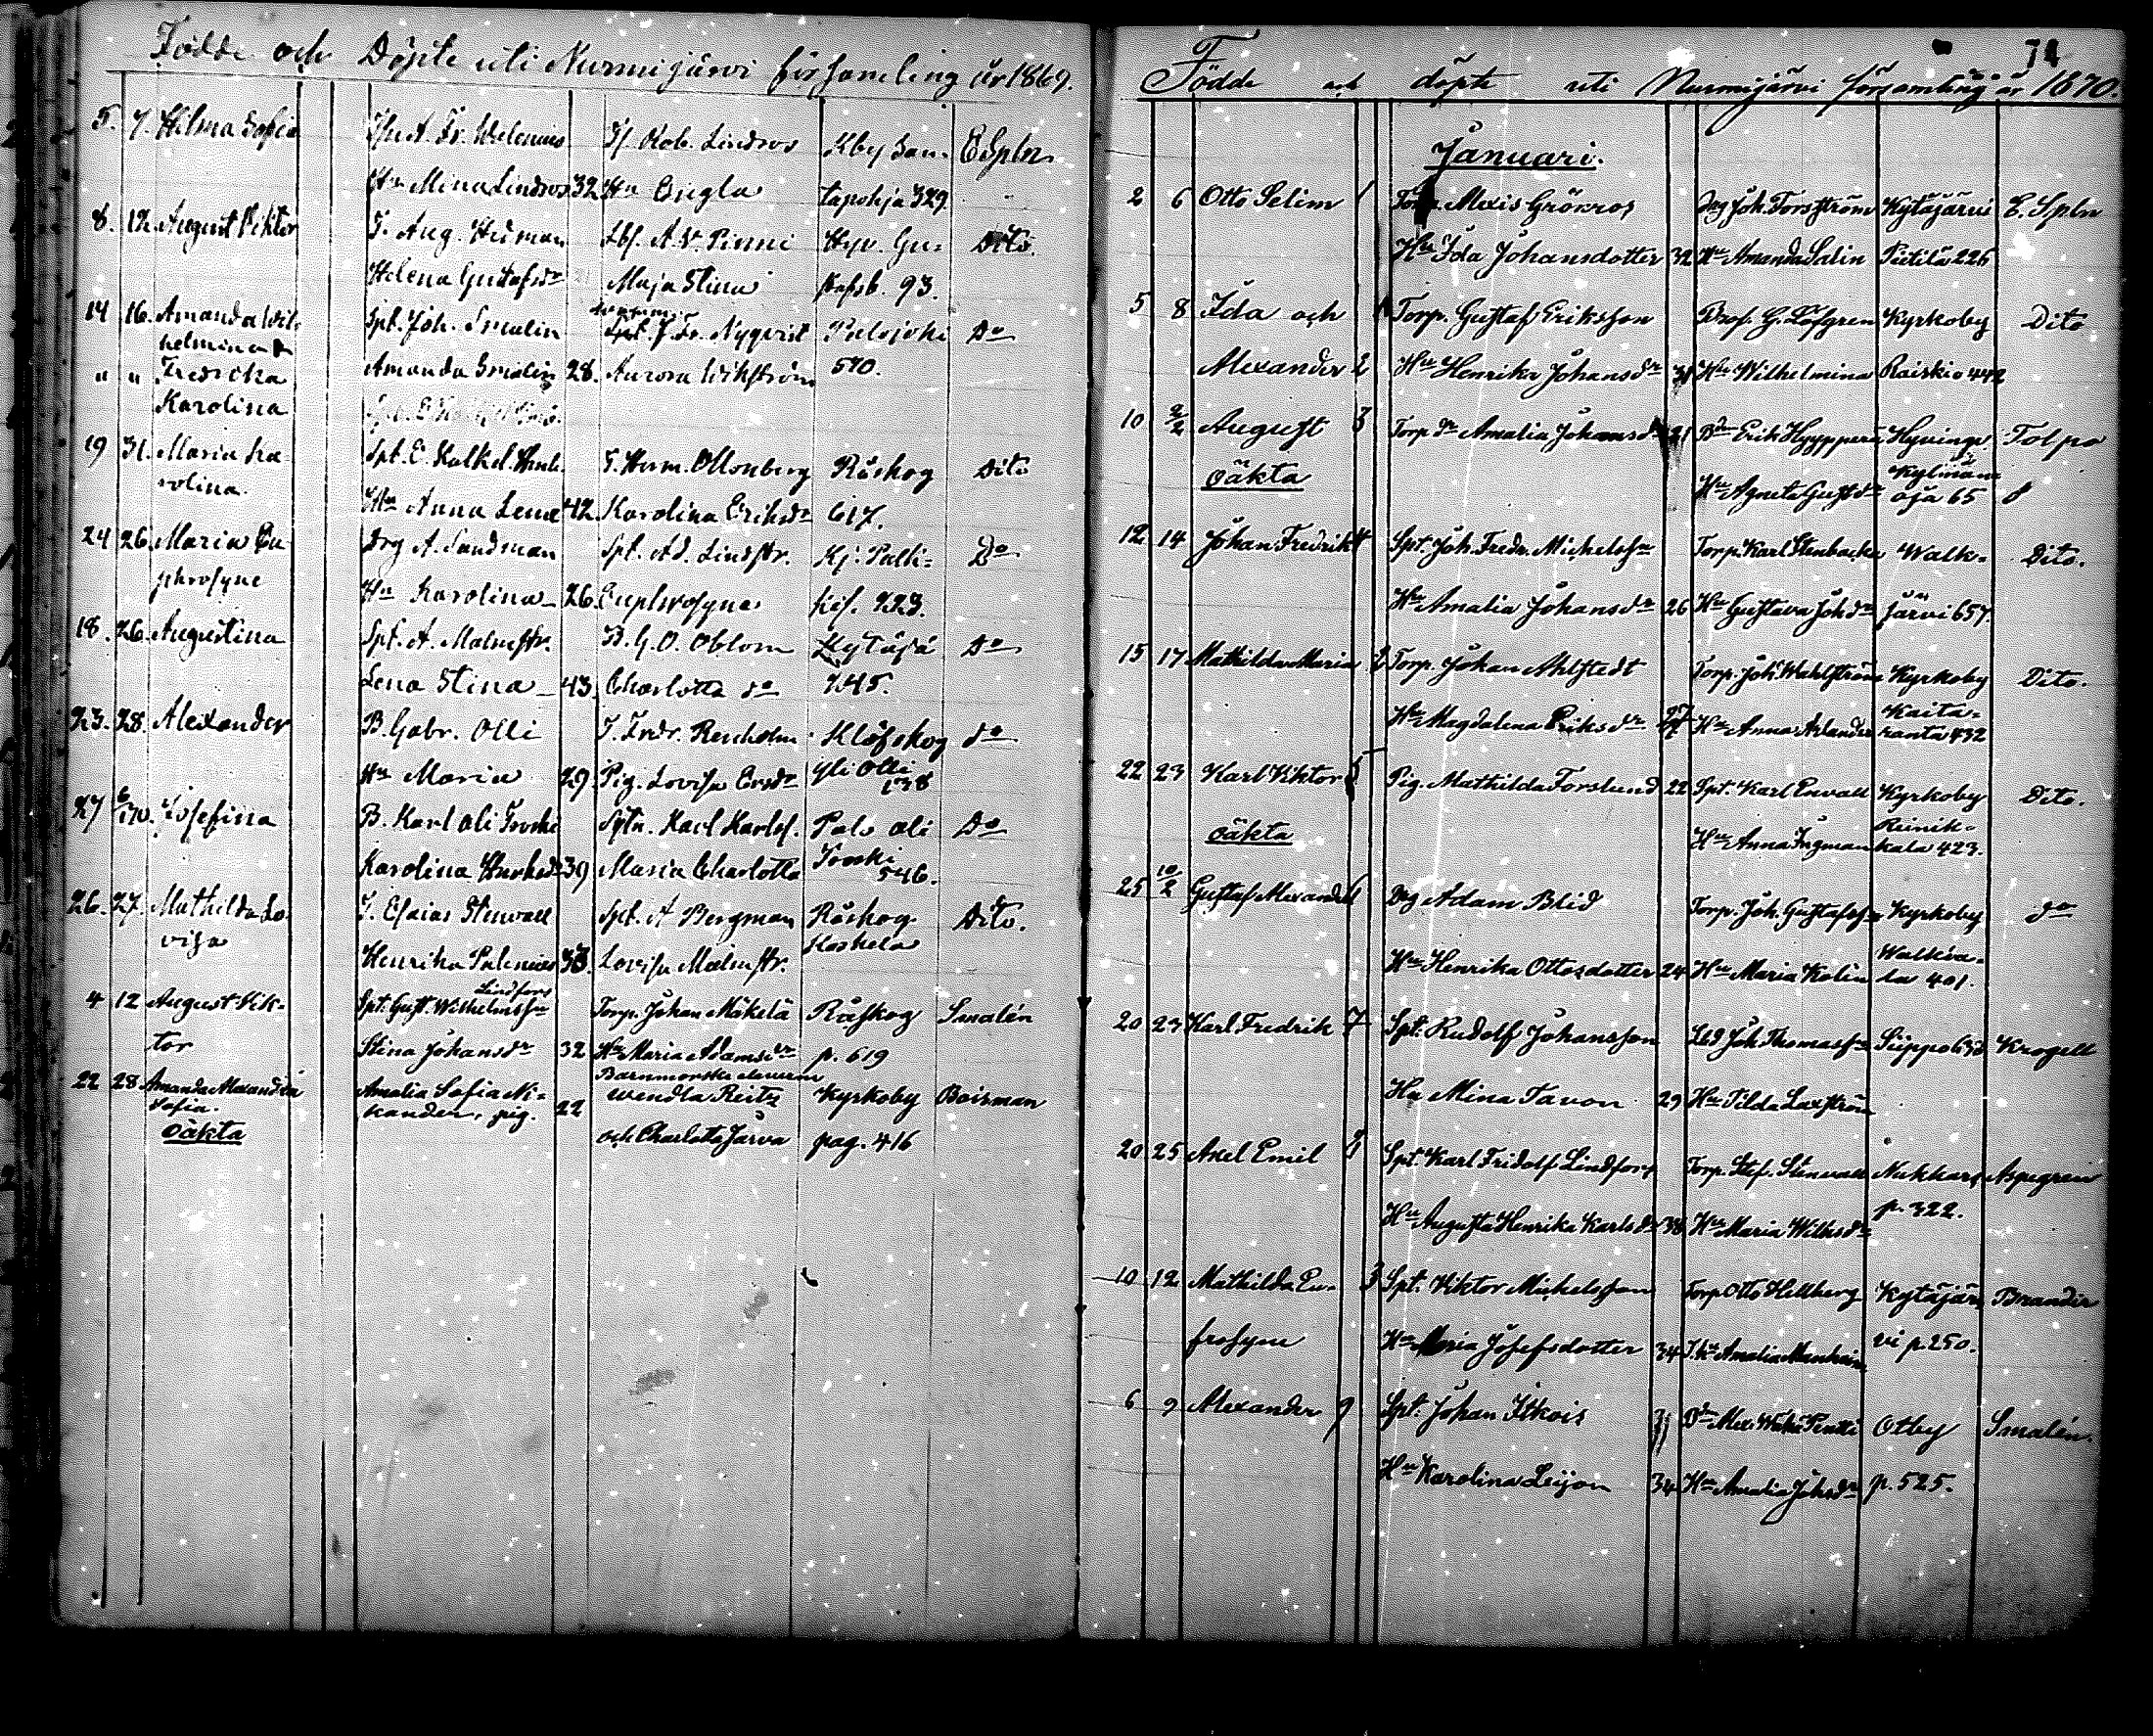 Födde och Döpte uti Nurmijärvi församling år 1869.
5. 7. Hilma Sofia A. Fr. Welenius Rob. Lindros Kby San- E Spln
Hu Mina Lindros 32 Hu Engla tapohja 329
8. 12. August Viktor T. Aug. Hedman A. V. Pinni Hyv. Gu- Dito.
Helena Gustafsdr Maja Stina stafsb. 93.
14 16. Amanda Wil- Spt. Joh. Smalin Nyqvist Palojoki Do
helmina
" " Fredrika Amanda Smalin 28. Aurora Wikström 570.
Karolina
19 31. Maria Ka- Spt. E. T. Herm. Ollonberg Råskog Dito
rolina.
Hu Anna Lena 42 Karolina Eriksdr 617.
24 26 Maria Eu- Drg A. Sandman Spt. Ad. Lindstr. Kj: Palti- Do
phrosyne
Hu Karolina 26. Euphrosyne 223.
18. 26. Augustina Spt. A. Malmstr. B. G. O. Oblom Kytäjä Do
Lena Stina 43. Charlotta dr 245.
23. 28. Alexander B. Gabr. Olli T. Fredr. Renholm Klöfskog do
Hu Maria 29. Pig. Lovisa Yli Olli
138
27 6/1 70. Josefina B. Karl Ali Karl Karlss. Palo ali Do
Karolina 39 Maria Charlotta 546.
26. 27. Mathilda Lo- T. Esaias Stenvall Spt. A Bergman Råskog Dito.
visa Koskela
Henrika Palenius 33. Lovisa Malmstr.
Lindfors
4 12 August Vik- Spt. Gust. Wilhelmsson Torp. Johan Mäkelä Råskog Smalén
tor Stina Johansdr 32 Hu Maria Adamsdr p. 619
Barnmorske eleverna
22 28 Amanda Alexandra Amalia Sofia Ni- Wendla Reitz Kyrkoby Boisman
Sofia. kander, pig. 22
oäkta och Charlotta Järva pag. 416
74
Födde och döpte uti Nurmijärvi församling år 1870.
Januari.
2 6 Otto Selim 1 Torp. Alexis Grönros Drg Joh. Forsström Kytäjärvi E. Spln
Hu Ida Johansdotter 32 Hu Amanda Salin Pietilä 226
5 8 Ida och Torp. Gustaf Eriksson G. Löfgren Kyrkoby Dito
Alexander 2 Hu Henrika Johansdr 31 Hu Wilhelmina Raiskio 442
10 2/2 August 3 Torp dr Amalia Johansdr 21 Bdn Erik Hyyppärä Hyvinge Tolpo
oäkta Kylmän-
Hu Agneta Gustdr oja 65
12 14 Johan Fredrik 4 Spt. Joh. Fredr. Michelsson Torp. Karl Stenbacka Walk- Dito.
Hu Amalia Johansdr 26 Hu Gustava Johdr järvi 657.
15 17 Mathilda Maria Torp. Johan Ahlstedt Torp. Joh. Wahlström Kyrkoby Dito.
Kaita-
Hu Magdalena Eriksdr 27 Hu Anna Arlander ranta 432
22 23 Karl Viktor 5 Pig. Mathilda Forslund 22 Spt. Karl Envall Kyrkoby Dito.
oäkta Reinik-
Hu Anna Ingman kala 423.
25 10/2 Gustaf Alexander 6 Drg Adam Blid Torp. Joh. Gustafsson Kyrkoby do
Hu Henrika Ottosdotter 24 Hu Maria Kolin la 401.
20 23 Karl Fredrik 7 Spt. Rudolf Johansson Joh Thomasson Seppo Krogell
Hu Mina Tavon 29 Hu Tilda Laxström
20 25 Axel Emil 8 Spt. Karl Fridolf Lindfors Torp. Stef. Stenvall Nukkars Aspegren
Hu Augusta Henrika Karlsdr 38 Hu Maria Wilhsdr p. 322.
10 12 Mathilda Eu- 3 Spt. Viktor Michelsson Torp Otto Hellberg Kytäjär- Brander
frosyne Hu Maria Josefsdotter 34 Amalia vi p. 250.
6 9 Alexander 9 Spt. Johan Itkois Otby Smalén.
Hu Karolina Leijon 34 Hu Amalia Johsdr p. 525.